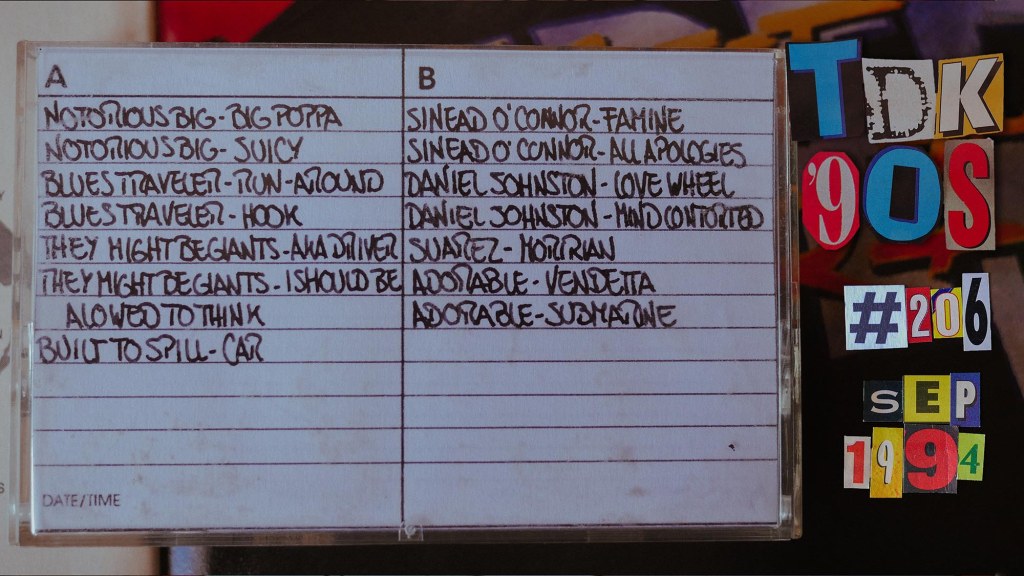 A
NOTORIOUS BIG - BIG POPPA
NOTORIOUS BIG - SUICY
BLUES TRAVELER - RUN-AROUND
BLUES TRAVELER - HOOK
THEY MIGHT BE GIANTS - AKA DRIVER
THEY MIGHT BE GIANTS - I SHOULD BE
ALOWED TO THINK
BUILT TO SPILL - CAR
DATE/TIME
B
SINEAD O'CONNOR - FAMINE
SINEAD O'CONNOR - ALL APOLOGIES
DANIEL JOHNSTON - LOVE WHEEL
DANIEL JOHNSTON - MIND CONTORTED
SUAREZ - MORRIAN
ADORABLE - VENDETTA
ADORABLE - SUBMARINE
TDK
'90S
#206
SEP
1994